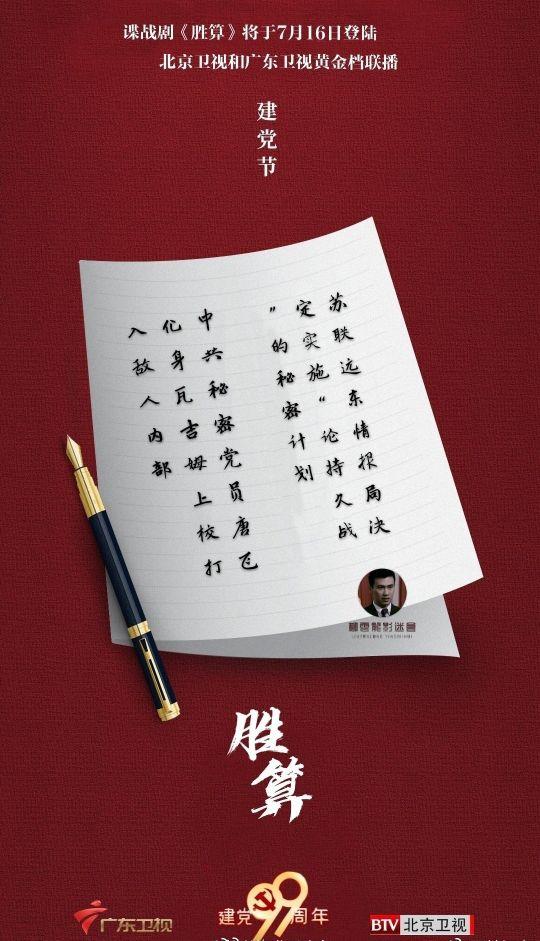 谍战剧《胜算》将于7月16日登陆
北京卫视和广东卫视黄金档联播
建党节
苏联远东情报局决
定实施“论持久战
”的秘密计划
中共秘密党员唐飞
化身瓦吉姆上校打
入敌人内部
柳雲龍影迷會
胜算
广东卫视
建党99周年
BTV 北京卫视